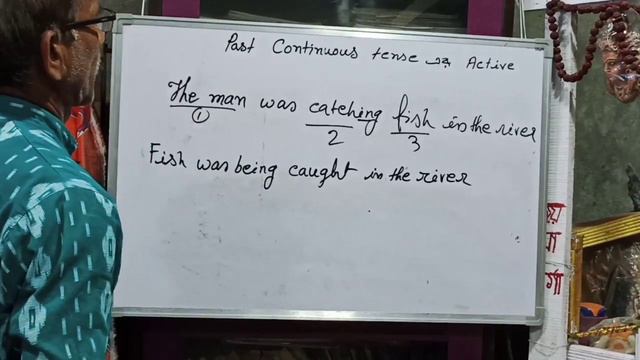 Past Continuous tense এর Active
The man was catching fish in the river
1 2 3
Fish was being caught in the river